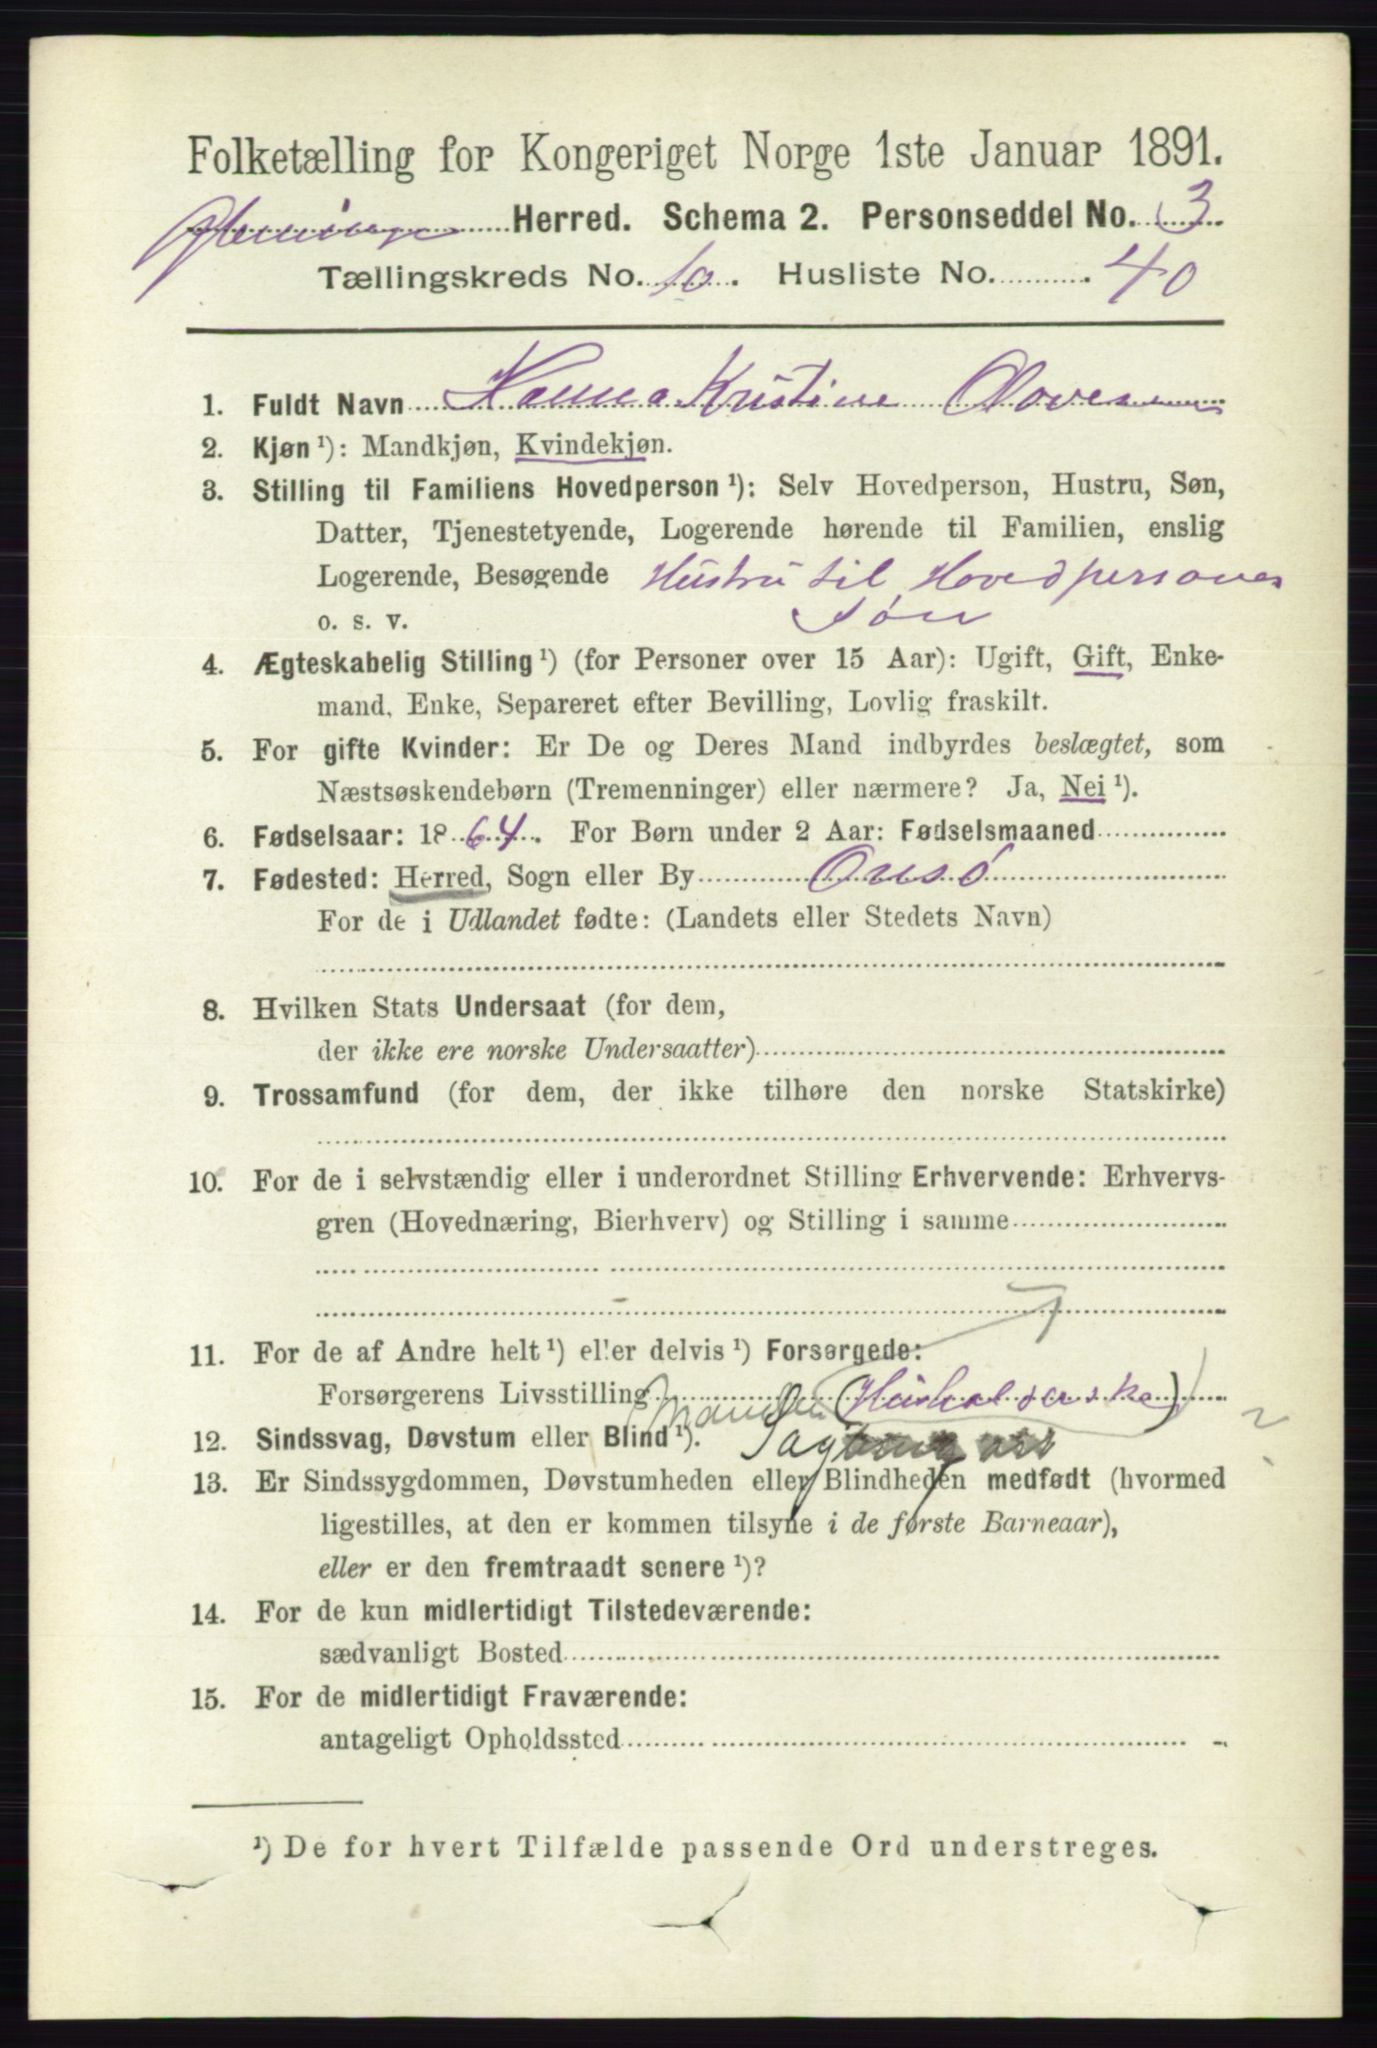 Folketælling for Kongeriget Norge 1ste Januar 1891.
Glemminge Herred. Schema 2. Personseddel No. 3
Tællingskreds No. 10. Husliste No. 40
1. Fuldt Navn Hanna Kristine
2. Kjøn ¹): Mandkjøn, Kvindekjøn.
3. Stilling til Familiens Hovedperson ¹): Selv Hovedperson, Hustru, Søn,
Datter, Tjenestetyende, Logerende hørende til Familien, enslig
Logerende, Besøgende Hustru til Hovedpersones
o. s. v. søn
4. Ægteskabelig Stilling ¹) (for Personer over 15 Aar): Ugift, Gift, Enke-
mand, Enke, Separeret efter Bevilling, Lovlig fraskilt.
5. For gifte Kvinder: Er De og Deres Mand indbyrdes beslægtet, som
Næstsøskendebørn (Tremenninger) eller nærmere? Ja, Nei ¹).
6. Fødselsaar: 1864. For Børn under 2 Aar: Fødselsmaaned
7. Fødested: Herred, Sogn eller By Onsø
For de i Udlandet fødte: (Landets eller Stedets Navn)
8. Hvilken Stats Undersaat (for dem,
der ikke ere norske Undersaatter)
9. Trossamfund (for dem, der ikke tilhøre den norske Statskirke)
10. For de i selvstændig eller i underordnet Stilling Erhvervende: Erhvervs-
gren (Hovednæring, Bierhverv) og Stilling i samme
11. For de af Andre helt ¹) eller delvis ¹) Forsørgede:
Forsørgerens Livsstilling (Husholderske)
12. Sindssvag, Døvstum eller Blind ¹).
13. Er Sindssygdommen, Døvstumheden eller Blindheden medfødt (hvormed
ligestilles, at den er kommen tilsyne i de første Barneaar),
eller er den fremtraadt senere ¹)?
14. For de kun midlertidigt Tilstedeværende:
sædvanligt Bosted
15. For de midlertidigt Fraværende:
antageligt Opholdssted
¹) De for hvert Tilfælde passende Ord understreges.